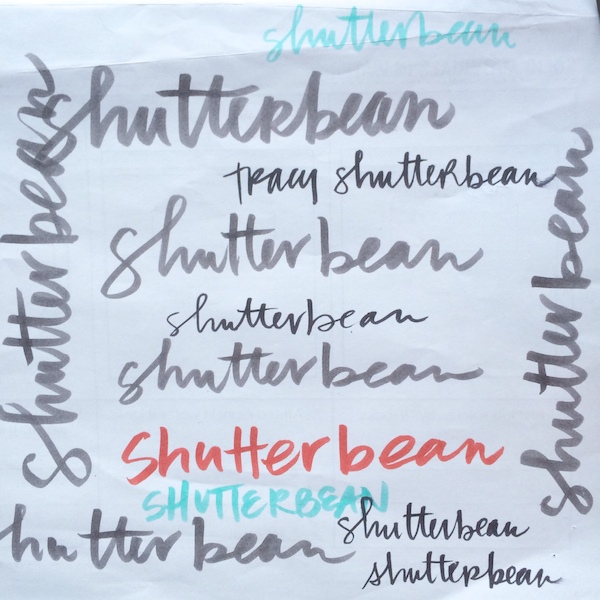 shutterbean
shutterbean
tracy shutterbean
shutterbean
shutterbean
shutterbean
shutterbean
SHUTTERBEAN
shutterbean
shutterbean
shutterbean
shutterbean
shutterbean